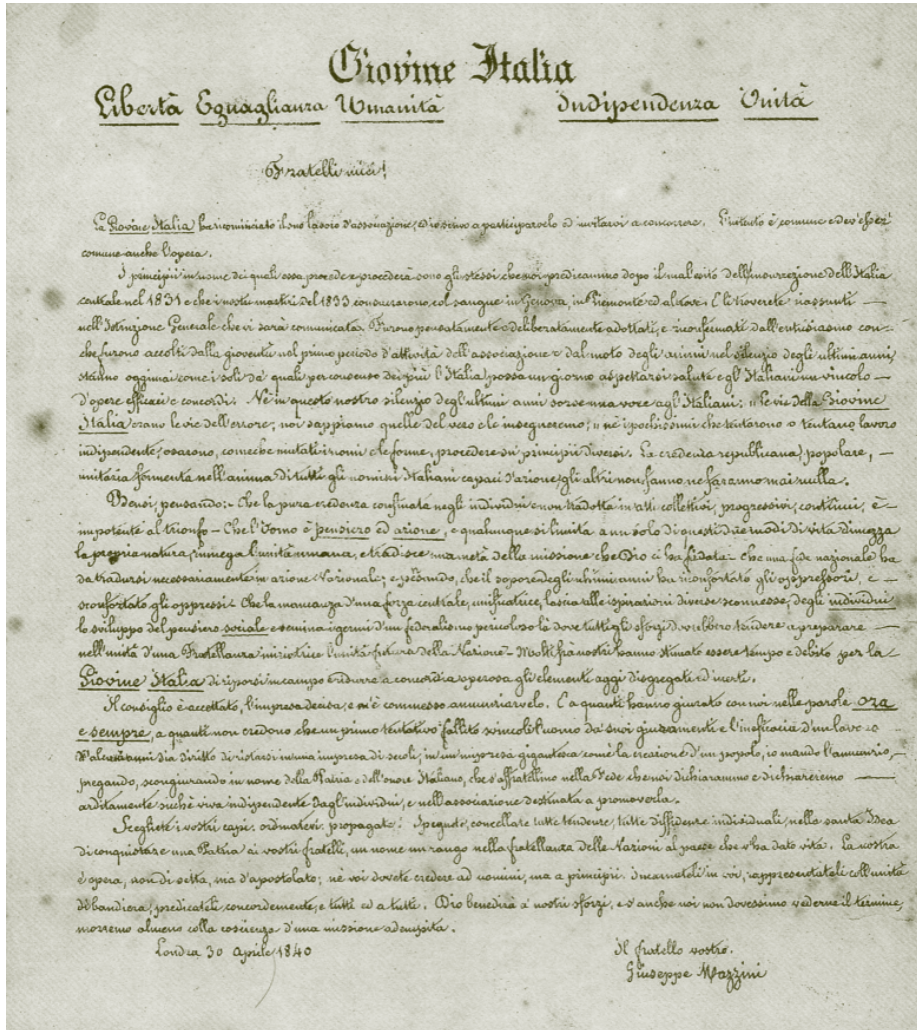 Giovine Italia
Libertà Eguaglianza Umanità Indipendenza Unità
Fratelli miei!
La Giovine Italia ha ricominciato il suo lavoro d'associazione, ed io scrivo a parteciparvelo ed invitarvi a concorrere. L'intento è comune e dev'esser
comune anche l'opera.
I principii in nome dei quali essa procede e procederà sono gli stessi che noi predicammo dopo il mal esito dell'insurrezione dell'Italia
centrale nel 1831 e che i nostri martiri del 1833 consacrarono, col sangue in Genova, in Piemonte ed altrove. E li troverete riassunti —
nell'Istruzione Generale che vi sarà comunicata. Furono pensatamente e deliberatamente adottati, e riconfermati dall'entusiasmo con-
che furono accolti dalla gioventù nel primo periodo d'attività dell'associazione e dal moto degli animi nel silenzio degli ultimi anni,
stanno oggimai come i soli da' quali per consenso dei più l'Italia possa un giorno aspettarsi salute e gl'Italiani un vincolo —
d'opere efficaci e concordi. Nè in questo nostro silenzio degl'ultimi anni sorse una voce agl'Italiani: „ le vie della Giovine
Italia erano le vie dell'errore; noi sappiamo quelle del vero e le insegneremo; „ nè i pochissimi che tentarono o tentano lavoro
indipendente, osarono, comechè mutati i nomi e le forme, procedere su principii diversi. La credenza republicana, popolare, —
unitaria fermenta nell'anima di tutti gli uomini Italiani capaci d'azione; gli altri non fanno nè faranno mai nulla.
Bensì, pensando:- Che la pura credenza confinata negli individui e non tradotta in atti collettivi, progressivi, continui, è-
impotente al trionfo - Che l'Uomo è pensiero ed azione, e qualunque si limita a un solo di questi due modi di vita dimezza
la propria natura, rinnega l'unità umana, e tradisce una metà della missione che Dio ci ha fidata - che una fede nazionale ha
da tradursi necessariamente in azione Nazionale; e pensando, che il sopore degli ultimi anni ha riconfortato gli oppressori, e —
sconfortato gli oppressi - Che la mancanza d'una forza centrale, unificatrice, lascia alle ispirazioni diverse sconnesse, degli individui
lo sviluppo del pensiero sociale e semina i germi d'un federalismo pericoloso là dove tutti gli sforzi dovrebbero tendere a preparare —
nell'unità d'una Fratellanza iniziatrice l'unità futura della Nazione - Molti fra nostri hanno stimato essere tempo e debito per la
Giovine Italia di riporsi in campo e ridurre a concordia operosa gli elementi oggi disgregati ed inerti.
Il consiglio è accettato, l'impresa decisa, e m'è commesso annunziarvelo. E a quanti hanno giurato con noi nelle parole ora
e sempre, a quanti non credono che un primo tentativo fallito svincoli l'uomo da' suoi giuramenti e l'inefficacia d'un lavoro
d'alcuni anni dia diritto di ristarsi in una impresa di secoli, in un impresa gigantesca com'è la creazione d'un popolo, io mando l'annunzio,—
pregando, scongiurando in nome della Patria e dell'onore Italiano, che s'affratellino nella Fede che noi dichiarammo e dichiareremo —
arditamente sinchè viva indipendente dagl'individui, e nell'associazione destinata a promoverla.
Scegliete i vostri capi, ordinatevi, propagate. Spegnete, cancellate tutte tendenze, tutte diffidenze individuali, nella santa Idea
di conquistare una Patria ai vostri fratelli, un nome un rango nella fratellanza delle Nazioni al paese che v'ha dato vita. La nostra
è opera, non di setta, ma d'apostolato; nè voi dovete credere ad uomini, ma a principii. Incarnateli in voi, rappresentateli coll'unità
di bandiera, predicateli concordemente, e tutti ed a tutti. Dio benedirà a' nostri sforzi, e s'anche noi non dovessimo vederne il termine,
morremo almeno colla coscienza d'una missione adempita.
Londra 30 Aprile 1840 Il fratello vostro.
Giuseppe Mazzini